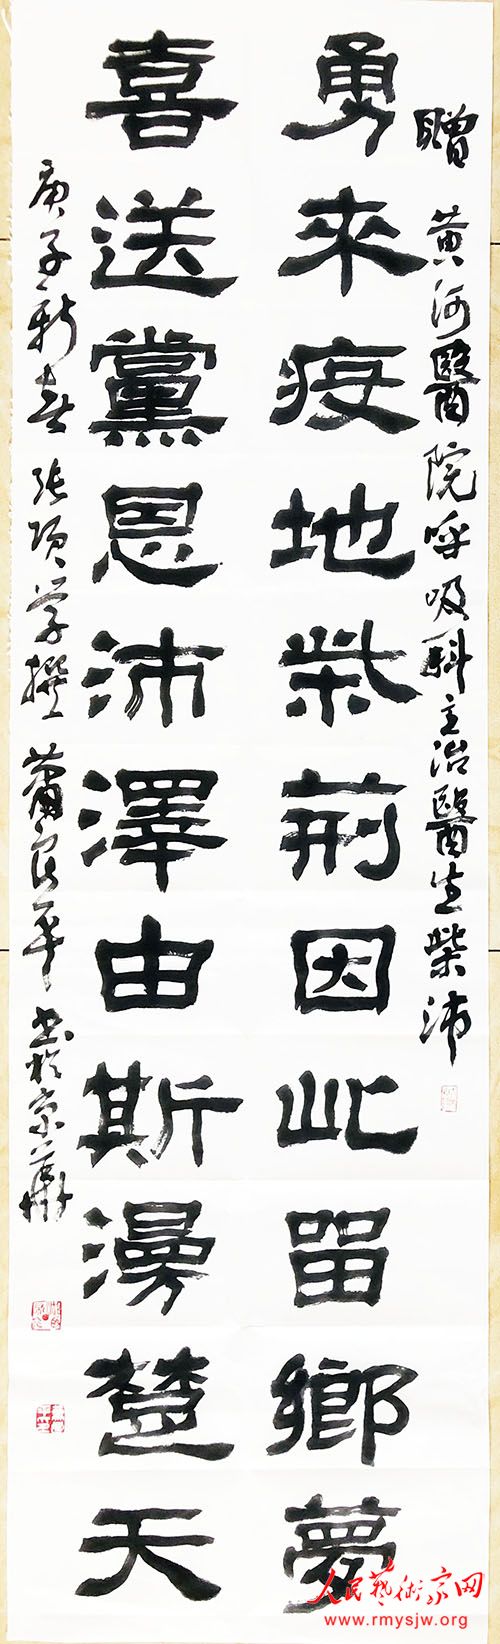 贈黃河醫院呼吸科主治醫生柴沛
勇來疫地柴荊因此留鄉夢
喜送黨恩沛澤由斯漫楚天
庚子新春張項学撰蕭良平书於京華
人民藝術家网
www.rmysjw.org